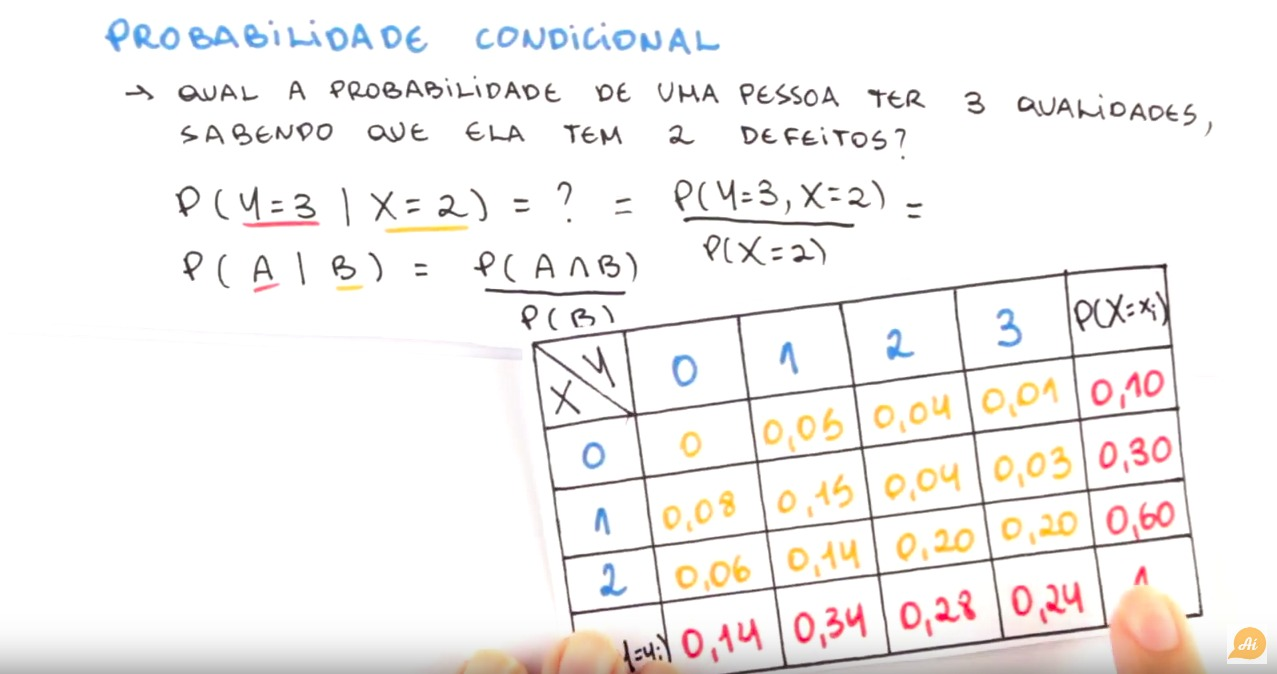 PROBABILIDADE CONDICIONAL
→ QUAL A PROBABILIDADE DE UMA PESSOA TER 3 QUALIDADES,
SABENDO QUE ELA TEM 2 DEFEITOS?
P(Y=3 | X=2) = ? = P(Y=3, X=2) / P(X=2) =
P(A | B) = P(A ∩ B) / P(B)
X Y 0 1 2 3 P(X=xi)
0 0 0,05 0,04 0,01 0,10
1 0,08 0,15 0,04 0,03 0,30
2 0,06 0,14 0,20 0,20 0,60
=yi) 0,14 0,34 0,28 0,24 1
Ai